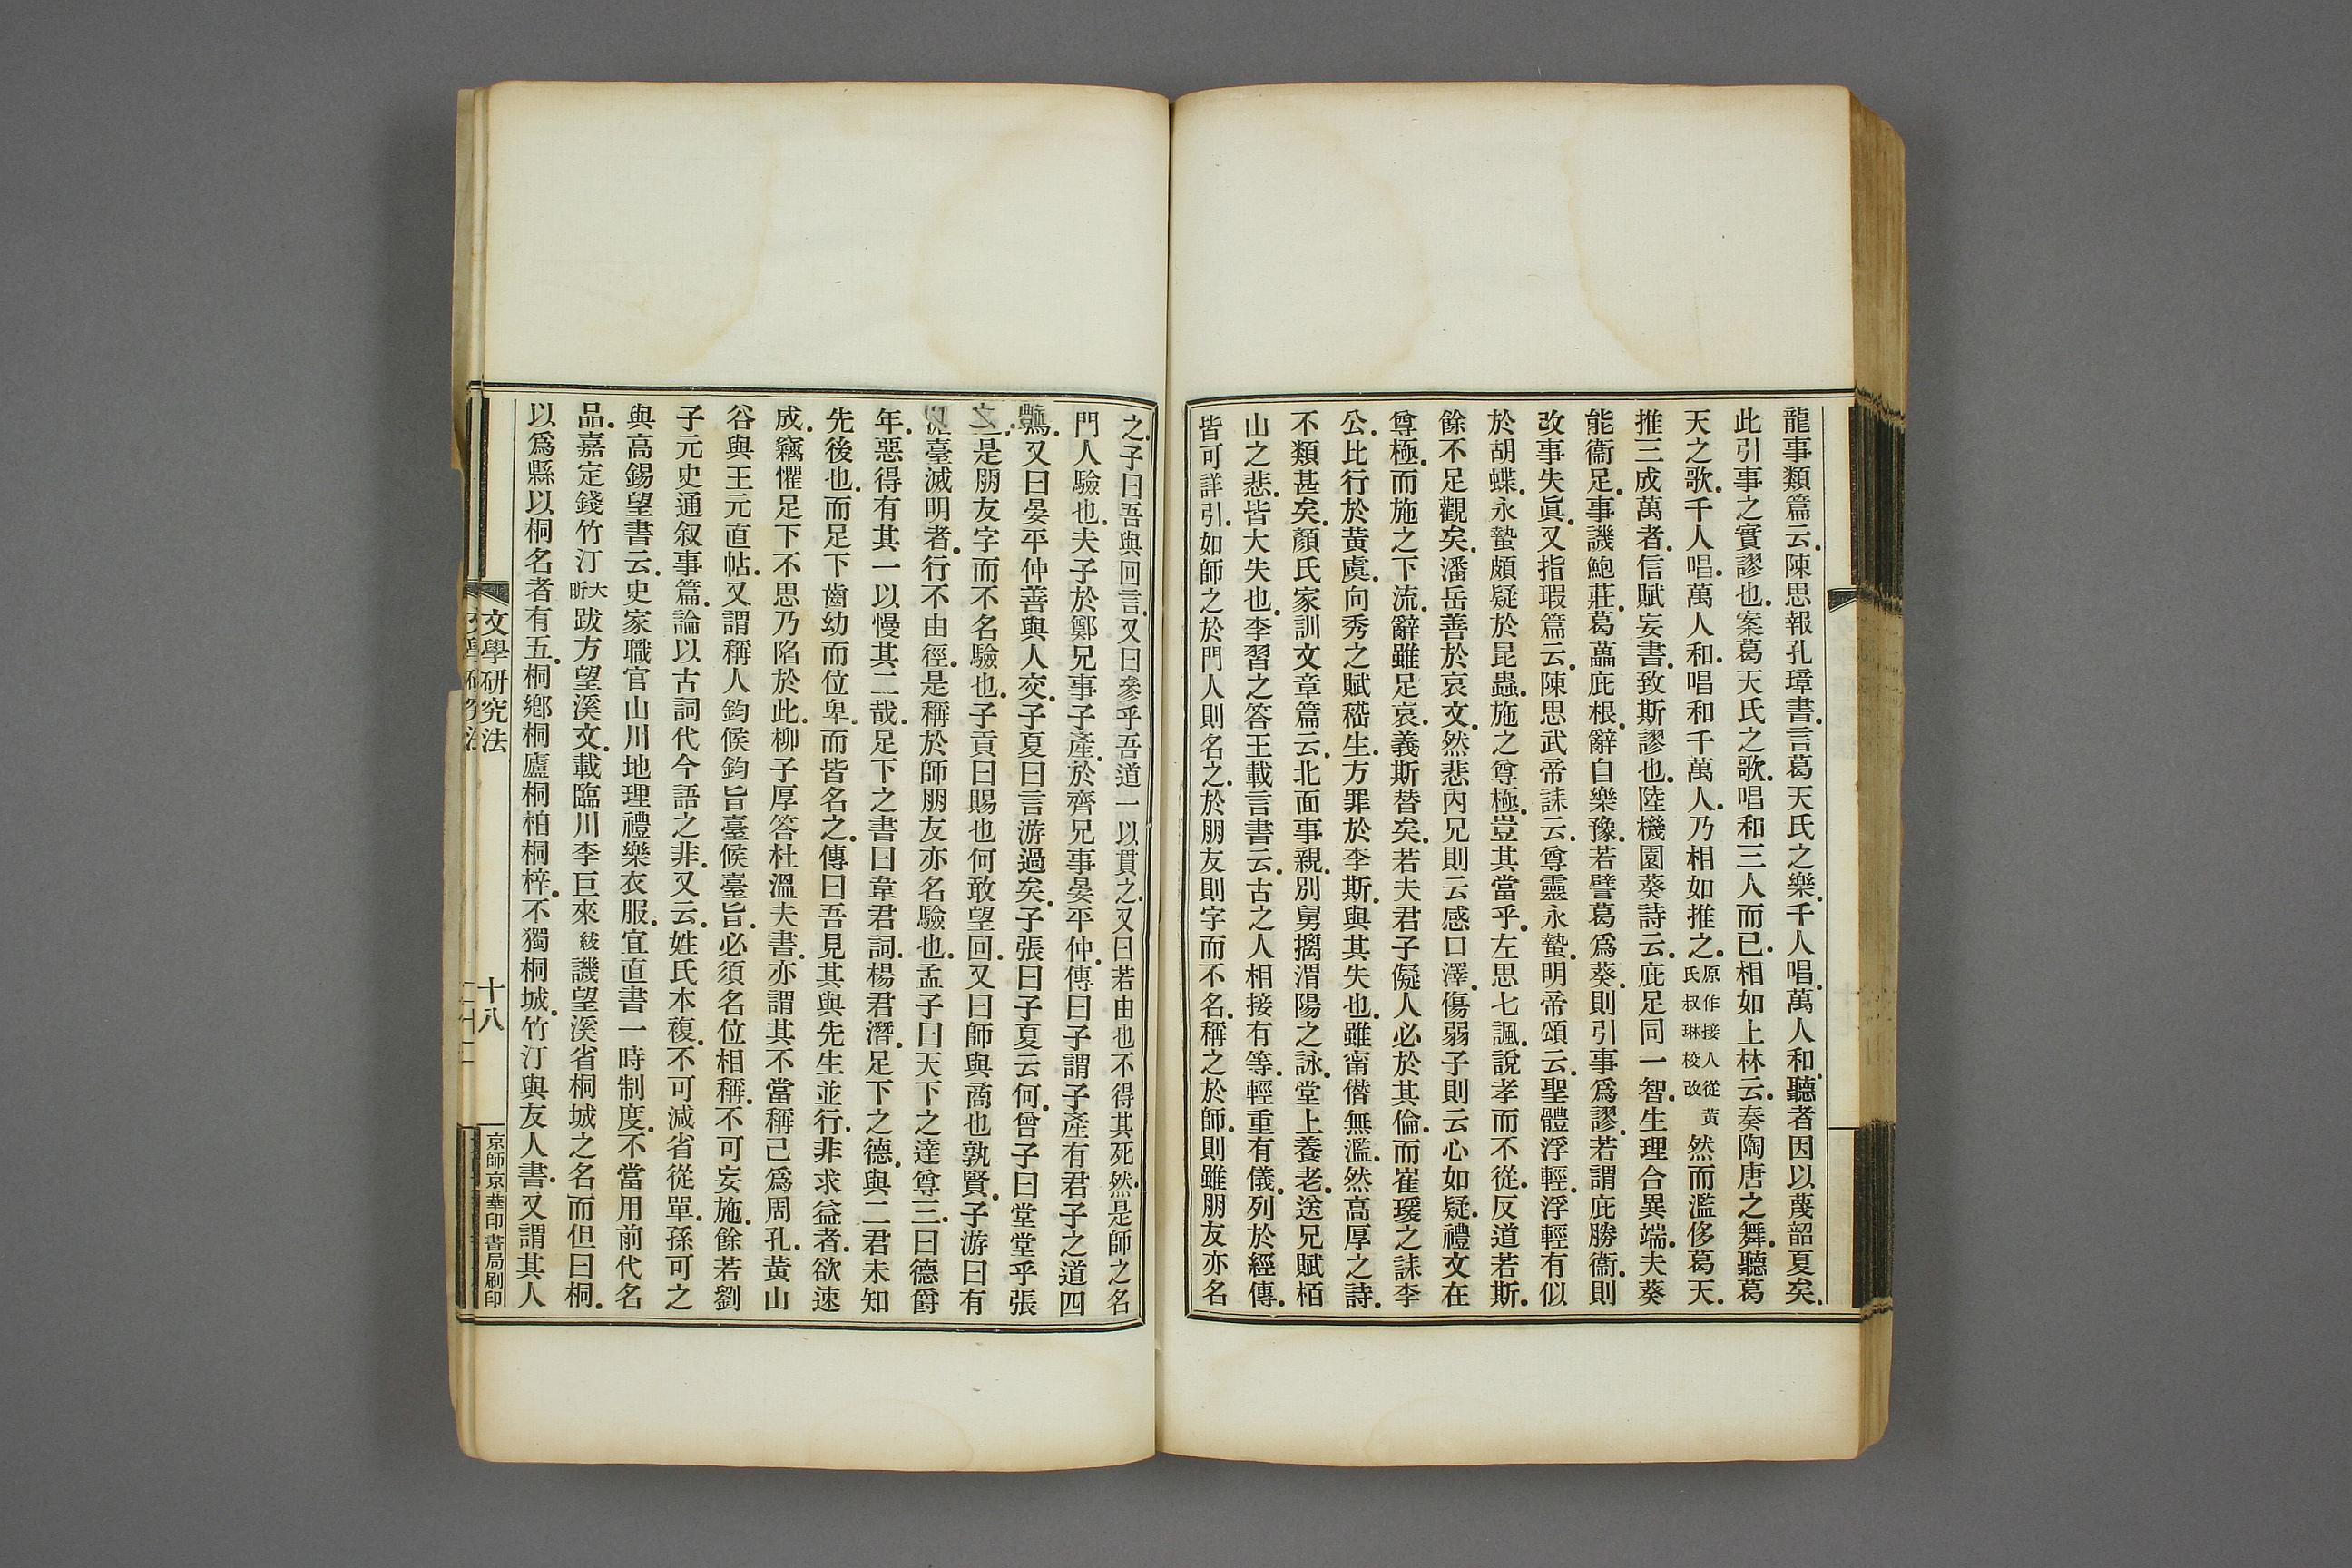 龍事類篇云．陳思報孔璋書．言葛天氏之樂．千人唱．萬人和．聽者因以蔑韶夏矣．
此引事之實謬也．案葛天氏之歌．唱和三人而已．相如上林云．奏陶唐之舞．聽葛
天之歌．千人唱．萬人和．唱和千萬人．乃相如推之．原作接人從黃氏叔琳校改然而濫侈葛天．
推三成萬者．信賦妄書．致斯謬也．陸機園葵詩云．庇足同一智．生理合異端．夫葵
能衞足．事譏鮑莊．葛藟庇根．辭自樂豫．若譬葛爲葵．則引事爲謬．若謂庇勝衞．則
改事失眞．又指瑕篇云．陳思武帝誄云．尊靈永蟄．明帝頌云．聖體浮輕．浮輕有似
於胡蝶．永蟄頗疑於昆蟲．施之尊極．豈其當乎．左思七諷．說孝而不從．反道若斯．
餘不足觀矣．潘岳善於哀文．然悲內兄則云感口澤．傷弱子則云心如疑．禮文在
尊極．而施之下流．辭雖足哀．義斯替矣．若夫君子儗人必於其倫．而崔瑗之誄李
公．比行於黃虞．向秀之賦嵇生．方罪於李斯．與其失也．雖甯僭無濫．然高厚之詩．
不類甚矣．顏氏家訓文章篇云．北面事親．別舅摛渭陽之詠．堂上養老．送兄賦栢
山之悲．皆大失也．李習之答王載言書云．古之人相接有等．輕重有儀．列於經傳．
皆可詳引．如師之於門人則名之．於朋友則字而不名．稱之於師．則雖朋友亦名
之．子曰吾與回言．又曰參乎吾道一以貫之．又曰若由也不得其死然．是師之名
門人驗也．夫子於鄭兄事子產．於齊兄事晏平仲．傳曰子謂子產有君子之道四
焉．又曰晏平仲善與人交．子夏曰言游過矣．子張曰子夏云何．曾子曰堂堂乎張
之．是朋友字而不名驗也．子貢曰賜也何敢望回．又曰師與商也孰賢．子游曰有
澹臺滅明者．行不由徑．是稱於師朋友亦名驗也．孟子曰天下之達尊三．曰德爵
年．惡得有其一以慢其二哉．足下之書曰韋君詞．楊君潛．足下之德．與二君未知
先後也．而足下齒幼而位卑．而皆名之．傳曰吾見其與先生並行．非求益者．欲速
成．竊懼足下不思乃陷於此．柳子厚答杜溫夫書．亦謂其不當稱己爲周孔．黃山
谷與王元直帖．又謂稱人鈞候鈞旨臺候臺旨．必須名位相稱．不可妄施．餘若劉
子元史通叙事篇．論以古詞代今語之非．又云．姓氏本複．不可減省從單．孫可之
與高錫望書云．史家職官山川地理禮樂衣服．宜直書一時制度．不當用前代名
品．嘉定錢竹汀大昕跋方望溪文．載臨川李巨來紱譏望溪省桐城之名而但曰桐．
以爲縣以桐名者有五．桐鄉桐廬桐柏桐梓．不獨桐城．竹汀與友人書．又謂其人
文學研究法
十八
京師京華印書局刷印